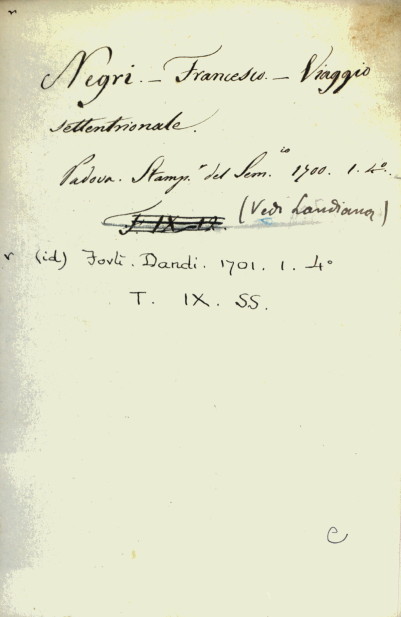 Negri. – Francesco. – Viaggio
settentrionale.
Padova. Stamp.ª del Sem.io 1700. 1. 4º.
F. IX–12. (Vedi Landiana)
v (id) Forlì. Dandi. 1701. 1. 4º
T. IX. SS.
C